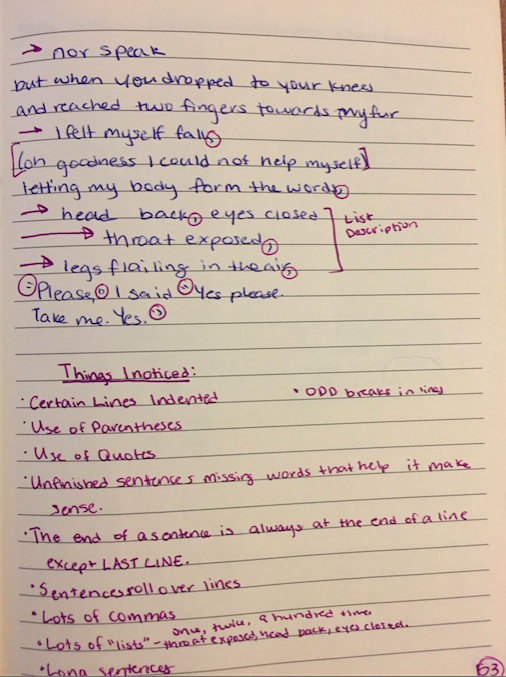 → nor speak
but when you dropped to your knees
and reached two fingers towards my fur
→ I felt myself fall,
[(oh goodness I could not help myself)]
letting my body form the words,
→ head back, eyes closed
List
Description
→ throat exposed,
→ legs flailing in the air,
"Please," I said "Yes please.
Take me. Yes."
Things I noticed:
· Certain Lines Indented
· ODD breaks in lines
· Use of Parentheses
· Use of Quotes
· Unfinished sentences missing words that help it make
sense.
· The end of a sentence is always at the end of a line
except LAST LINE.
· Sentences roll over lines
· Lots of commas
once, twice, a hundred times
· Lots of "lists" - throat exposed, head back, eyes closed.
· Long sentences
63